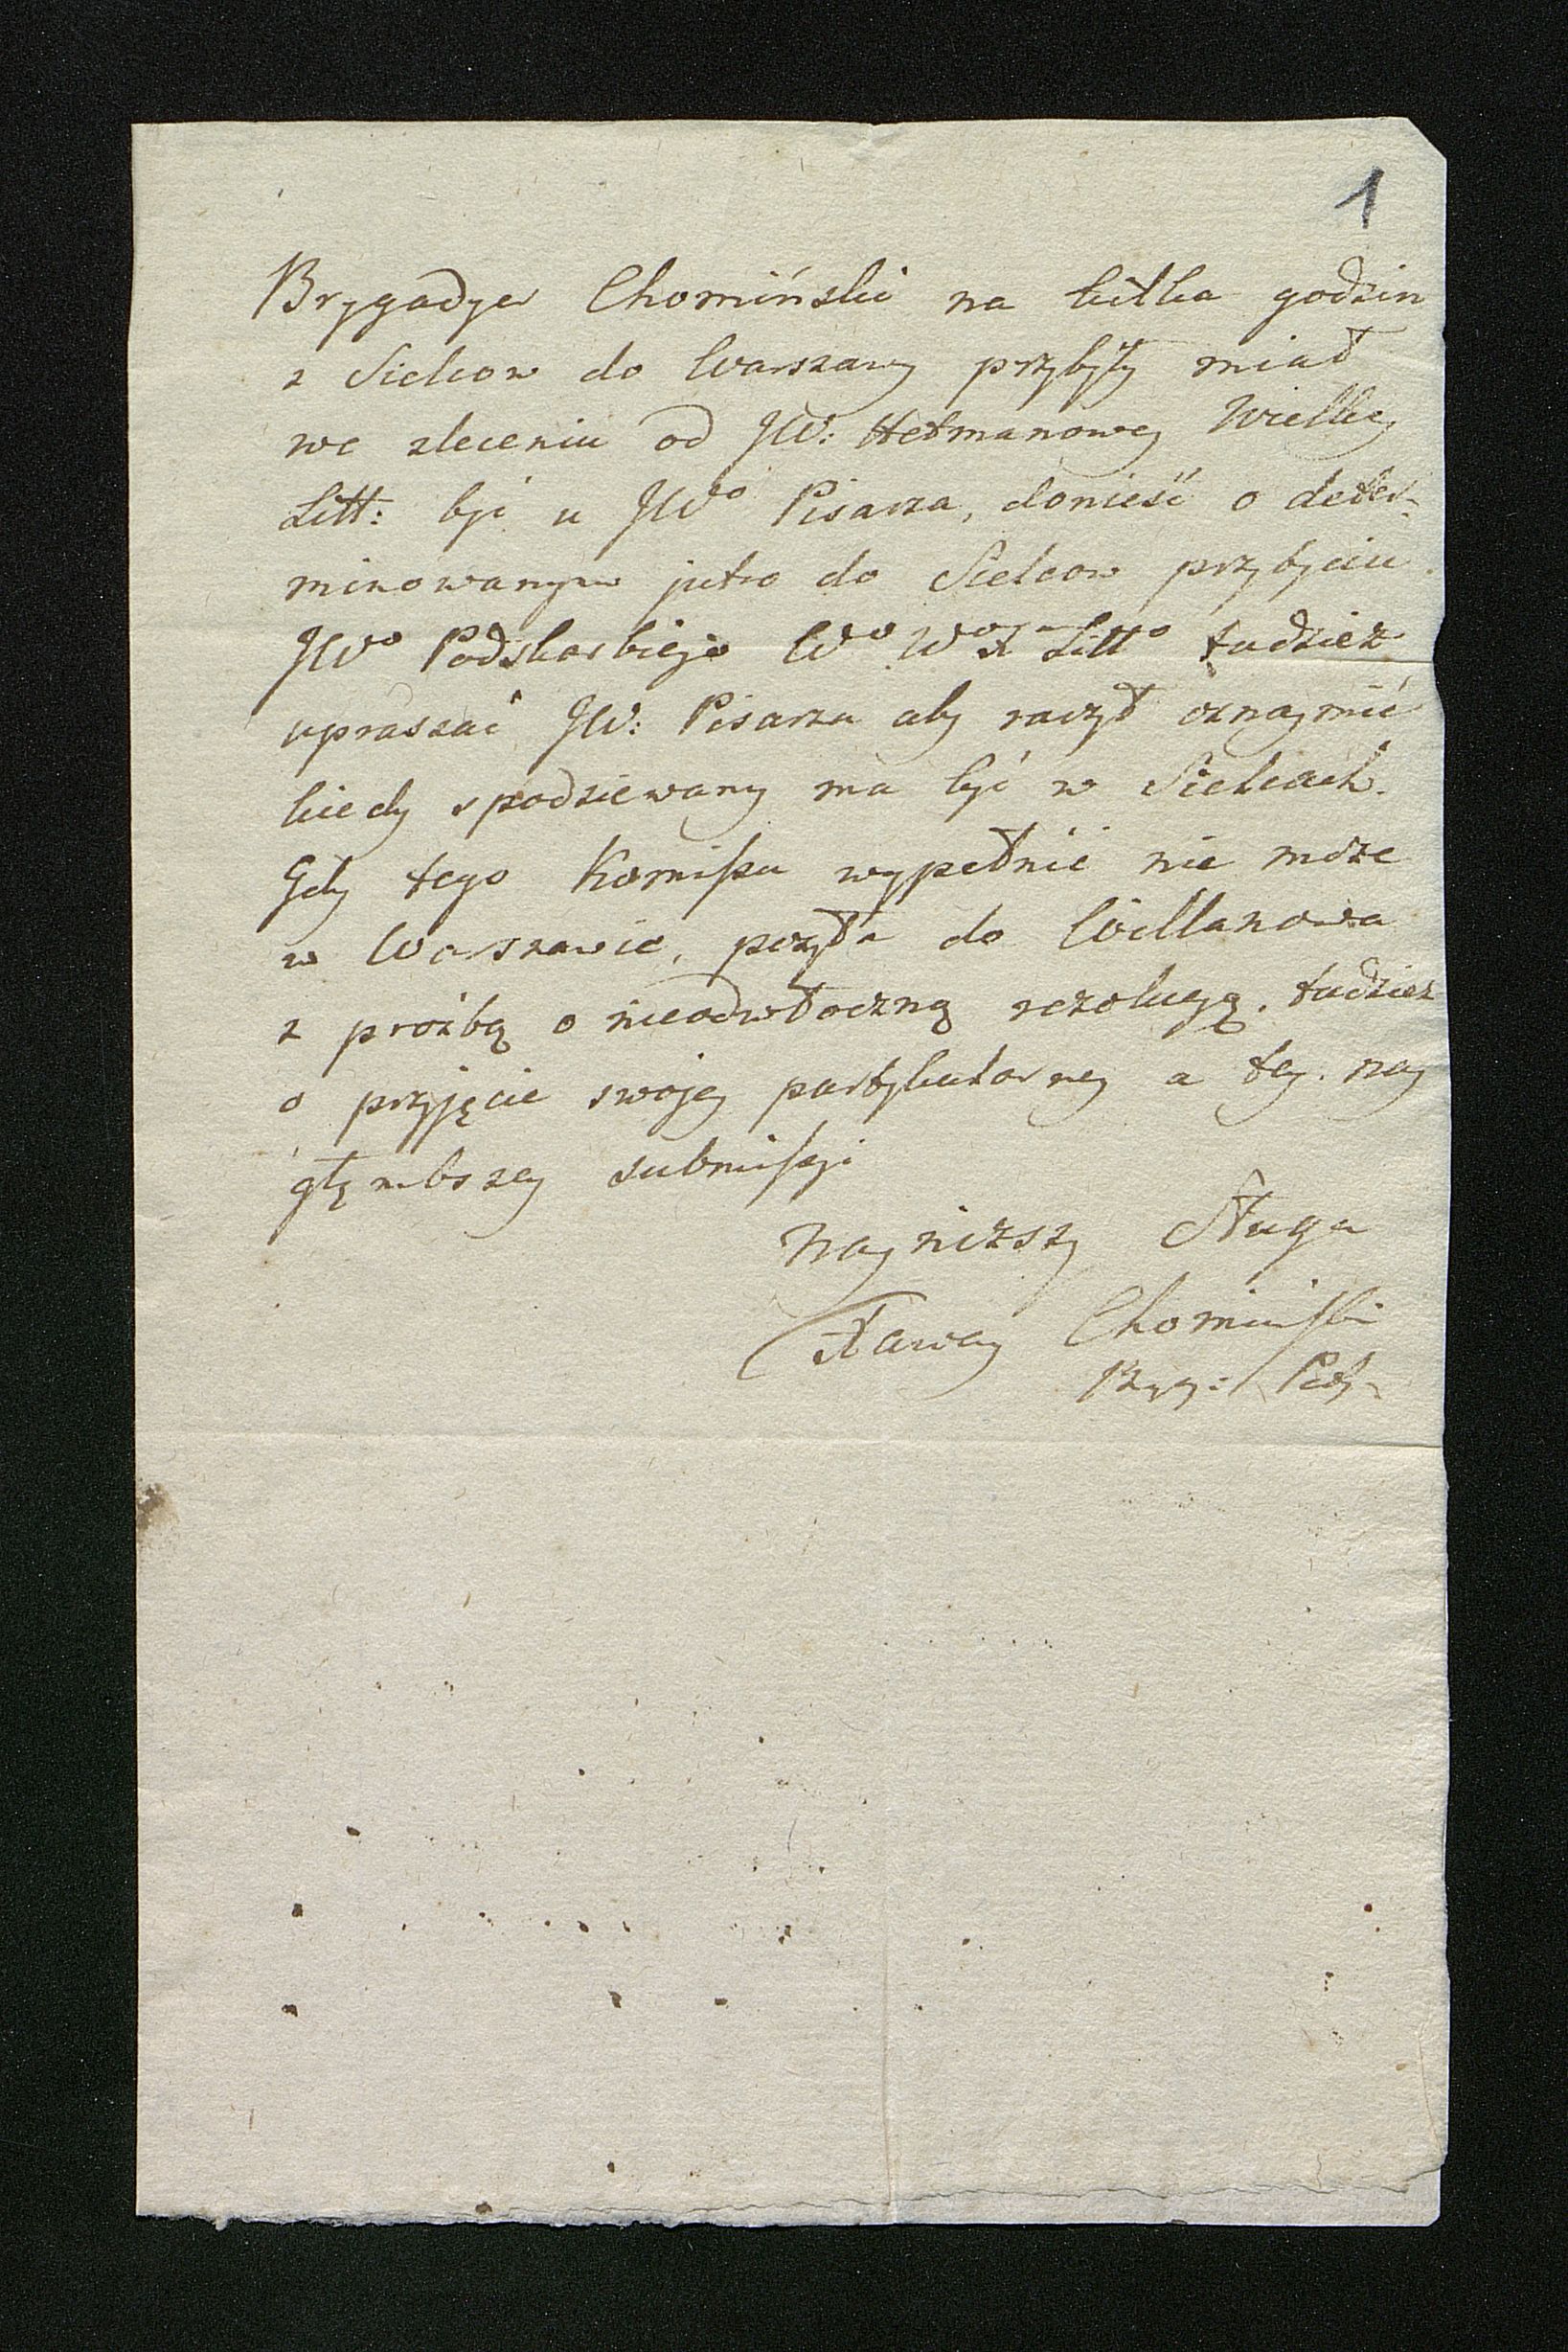 1
Brygadyer Chomiński na kilka godzin
z Sielcow do Warszawy przybyły miał
we zleceniu od JW: Hetmanowey Wielkiey
Litt: być u JWo Pisarza, donieść o deter-
minowanym jutro do Sielcow przybyciu
JWo Podskarbiego Wo W X Litto tudziesz
upraszać JW: Pisarza aby raczył oznaymić
kiedy spodziewany ma być w Sielcach.
Gdy tego Komissu wypełnić nie może
w Warszawie, posyła do Willanowa
z prośbą o nieodwłoczną rezolucyą. tudziesz
o przyjęcie swojey partykularney a tey. nay
głęmbszey submissyi
Nayniższy Sługa
Xawery Chominski
Bryg: Petyh